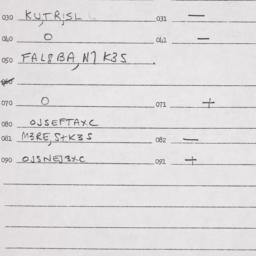 030 KU,TR,SL 031 —
040 O 041 —
050 FAL8BA,N7 K3S
060
070 O 071 +
080 OJSEFTAXC
081 M3RE,S+K3S 082 —
090 OJSNEJ3XC 091 +